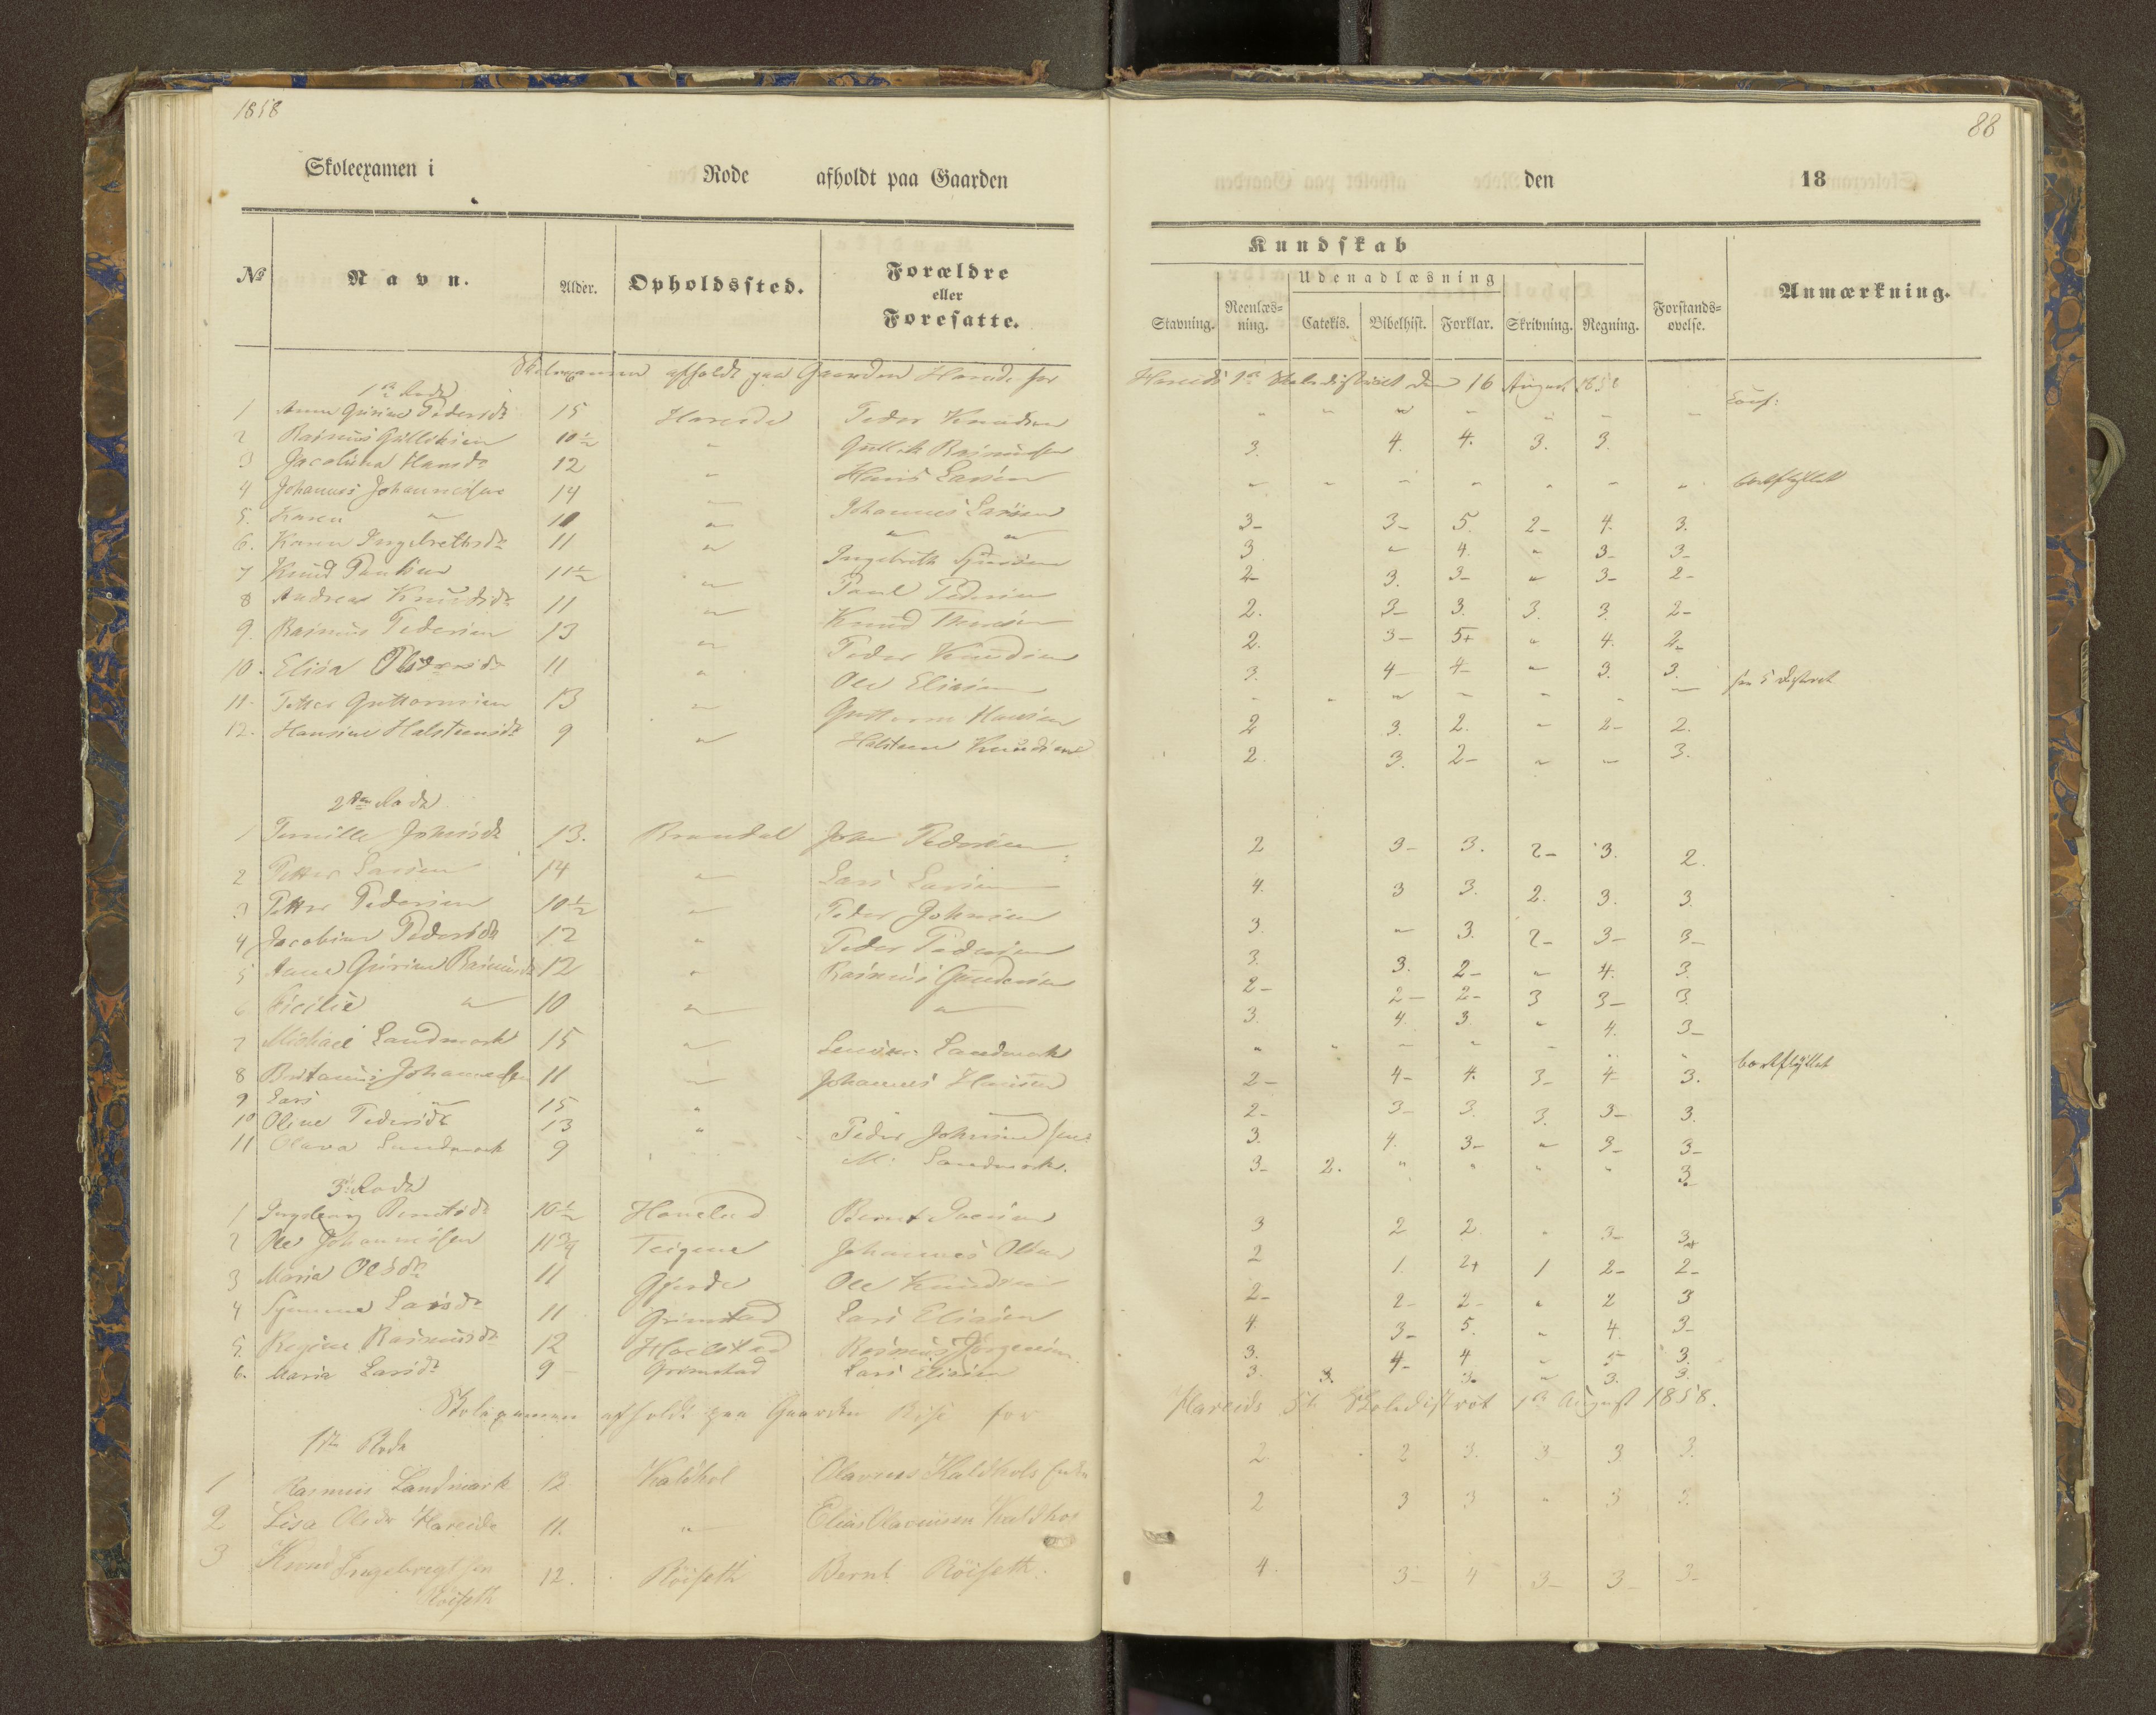 1858
88
Skoleexamen i Rode afholdt paa Gaarden den 18
Kundskab
Udenadlæsning
No Navn. Alder. Opholdssted. Forældre eller Foresatte.
Stavning. Reenlæs-ning. Catekis. Bibelhist. Forklar. Skrivning. Regning. Forstands-øvelse. Anmærkning.
Skoleexamen afholdt paa Gaarden Hareide for Hareids 1ste Skoledistrict den 16 August 1858
1ste Rode
1 Anne Gurine Pedersdr 15 Hareide Peder Knudsen " " " " " " " Conf:
2 Rasmus Gulliksen 10½ " Gullik Rasmussen 3. 4. 4. 3. 3.
3 Jacobina Hansdr 12 " Hans Larsen " " " " " " " bortflyttet
4 Johannes Johannessen 14 " Johannes Larsen 3- 3- 5. 2- 4. 3.
5. Karen " 10 " " " 3 " 4. " 3- 3-
6. Karen Ingebrethsdr 11 " Ingebreth 2- 3. 3- " 3- 2-
7 Knud Paulsen 11½ " Paul Pedersen 2. 3- 3. 3. 3. 2-
8 Andrea Knudsdr 11 " Knud 2. 3- 5+ " 4. 2-
9. Rasmus Pedersen 13 " Peder Knudsen 3. 4- 4- " 3. 3.
10. Elisa 11 " Ole Eliasen " " " " " " " 5 district
11. Petter Guttormsen 13 " Guttorm Hansen 2 3. 2. " 2- 2.
12. Hansine Halsteensdr 9 " Halsteen Knudsen 2. 3. 2- " " 3.
2den Rode
1 Pernille Johnsdr 13. Brandal John Pedersen 2 3- 3. 2- 3. 2.
2 Petter Larsen 14 " Lars Larsen 4. 3 3. 2. 3. 3.
3 Petter Pedersen 10½ " Peder Johnsen 3. " 3. 2- 3- 3-
4 Jacobine Pedersdr 12 " Peder Pedersen 3. 3. 2- " 4. 3.
5 Anne Gurine Rasmusdr 12 " Rasmus Gundersen 2- 2- 2- 3 3- 3.
6 " 10 " " 3. 4. 3. " 4. 3-
7 Michael Landmark 15 " Landmark " " " " " " " bortflyttet
8 Johannessen 11 " Johannes Hansen 2- 4- 4. 3- 4- 3.
9 Lars " 15 " 2- 3- 3. 3. 3- 3.
10 Oline Pedersdr 13 " Peder Johnsen 3. 4. 3- " 3- 3-
11 Olava Landmark 9 M. Landmark. 3- 2. " " " " 3.
3die Rode
1 Berntsdr 10½ Bernt 3 2 2. " 3- 3+
2 Ole Johannessen 11¾ Teigene Johannes Olsen 2 1. 2+ 1 2- 2-
3 Maria Olsdr 11 Gjerde Ole Knudsen 2- 2- 2- " 2 3
4 Larsdr 11 Grimstad Lars Eliasen 4 3- 5. " 4. 3-
5. Regine Rasmusdr 12 Rasmus Jørgensen 3. 4- 4 " 5 3.
6. Maria Larsdr 9 - Grimstad Lars Eliasen 3. 3. 3. " 3. 3.
Skolexamen afholdt paa Gaarden Rise for Hareids 5te Skoledistrikt 1ste August 1858.
1ste Rode
1 Rasmus Landmark 12 Kaldhol Olavus Kaldhol 2. 2 3. 3 3 3.
2 Lisa Olsdr Hareide 11. " Elias Olavusen Kaldhol 2 3 3 " 3 3.
3 Knud Ingebregtsen Röiseth 12. Röiseth Bernt Röiseth. 4. 3- 4 3- 3- 3-